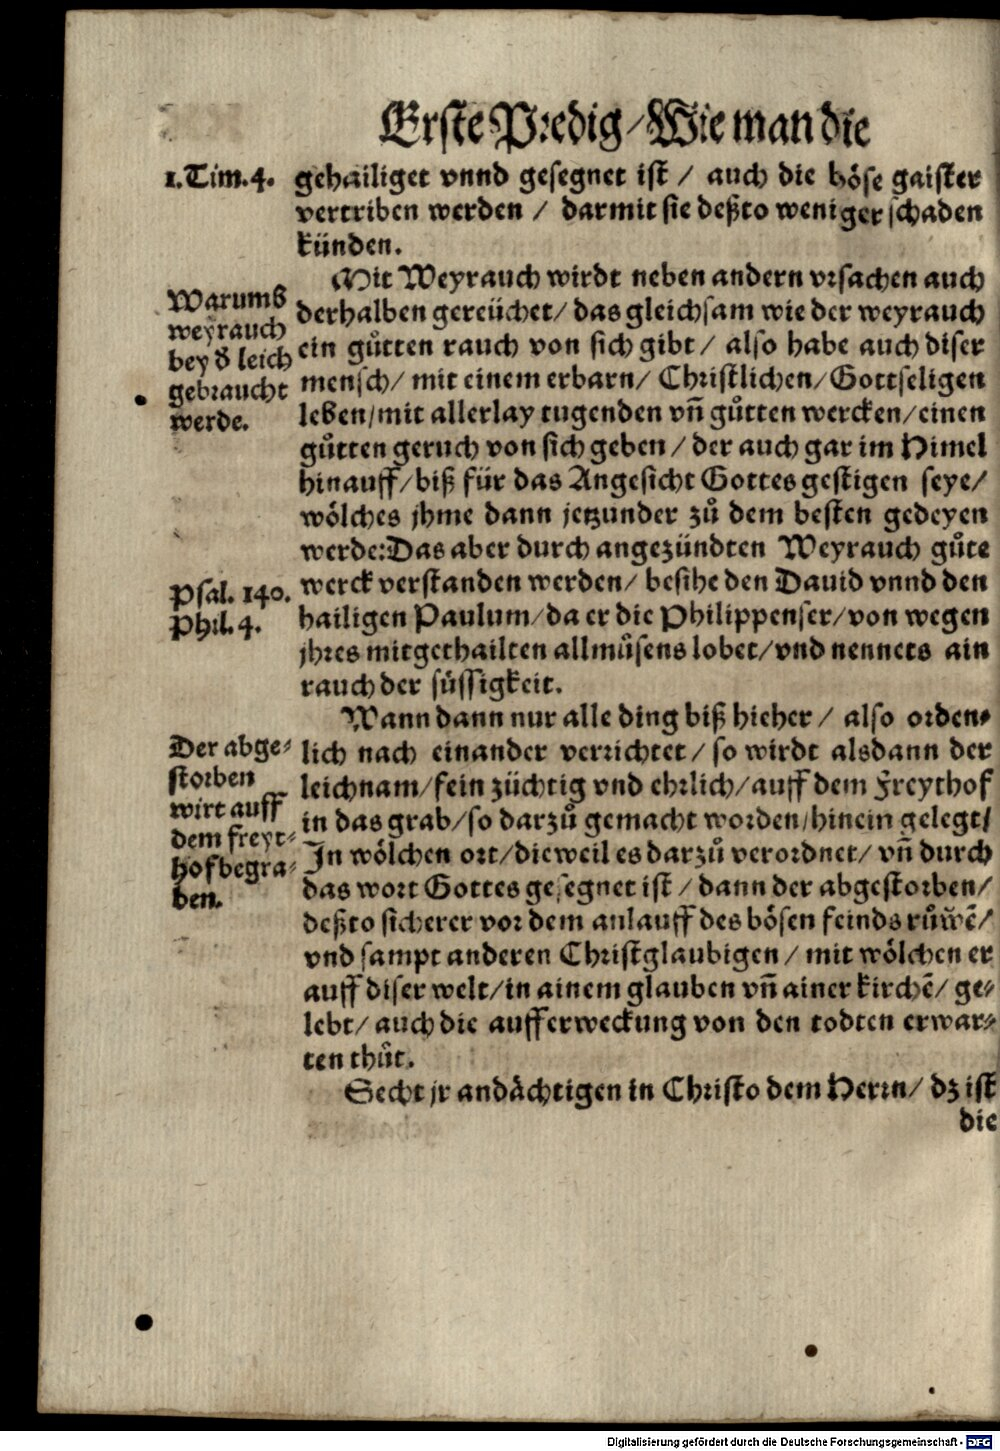 Erste Predig / Wie man die
1. Tim. 4.
gehailiget vnnd gesegnet ist / auch die böse gaister
vertriben werden / darmit sie deßto weniger schaden
künden.
Warumb
weyrauch
bey d̕ leich
gebraucht
werde.
Mit Weyrauch wirdt neben andern vrsachen auch
derhalben gereüchet / das gleichsam wie der weyrauch
ein gůtten rauch von sich gibt / also habe auch diser
mensch / mit einem erbarn / Christlichen / Gottseligen
leben / mit allerlay tugenden vñ gůtten wercken / einen
gůtten geruch von sich geben / der auch gar im Himel
hinauff / biß für das Angesicht Gottes gestigen seye /
wölches jhme dann jetzunder zů dem besten gedeyen
werde: Das aber durch angezündten Weyrauch gůte
Psal. 140.
Phil. 4.
werck verstanden werden / besihe den Dauid vnnd den
hailigen Paulum / da er die Philippenser / von wegen
jhres mitgethailten allmůsens lobet / vnd nennets ain
rauch der süssigkeit.
Wann dann nur alle ding biß hieher / also orden⸗
Der abge⸗
storben
wirt auff
dem freyt⸗
hof begra⸗
ben.
lich nach einander verrichtet / so wirdt alsdann der
leichnam / fein züchtig vnd ehrlich / auff dem Freythof
in das grab / so darzů gemacht worden / hinein gelegt /
In wölchen ort / dieweil es darzů verordnet / vñ durch
das wort Gottes gesegnet ist / dann der abgestorben /
deßto sicherer vor dem anlauff des bösen feinds růwẽ /
vnd sampt anderen Christglaubigen / mit wölchen er
auff diser welt / in ainem glauben vñ ainer kirchẽ / ge⸗
lebt / auch die aufferweckung von den todten erwar⸗
ten thůt.
Secht jr andächtigen in Christo dem Herrn / dz ist
die
Digitalisierung gefördert durch die Deutsche Forschungsgemeinschaft - DFG